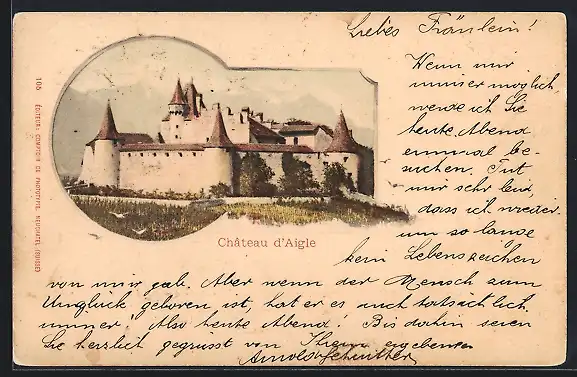 Liebes Fräulein!
Wenn mir
immer möglich,
werde ich Sie
heute Abend
einmal be-
suchen. Tut
mir sehr leid,
dass ich wieder
um so lange
kein Lebenszeichen
von mir gab. Aber wenn der Mensch zum
Unglück geboren ist, hat er es auch tatsächlich
immer. Also heute Abend! Bis dahin seien
Sie herzlich gegrüsst von Ihrem ergebenen
Arnold Schnitter
Château d'Aigle
105 ÉDITEUR: COMPTOIR DE PHOTOTYPIE, NEUCHATEL (SUISSE)